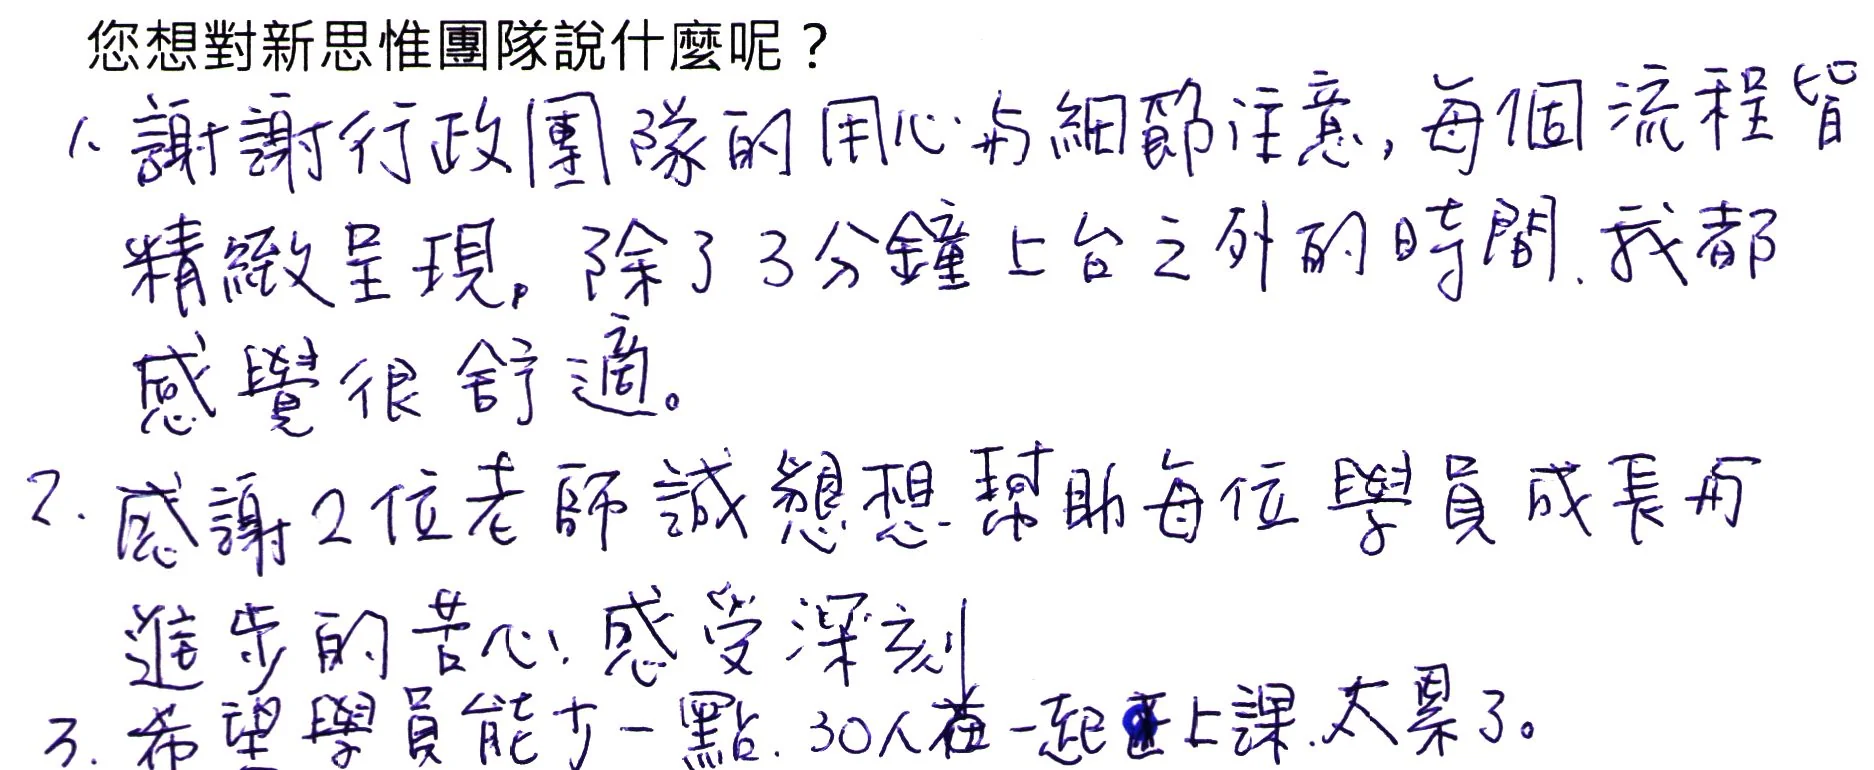 您想對新思惟團隊說什麼呢？
1. 謝謝行政團隊的用心与細節注意, 每個流程皆
精緻呈現。除了3分鐘上台之外的時間、我都
感覺很舒適。
2. 感謝2位老師誠懇想幫助每位學員成長与
進步的苦心、感受深刻
3. 希望學員能少一點、30人在一起上課、太累了。